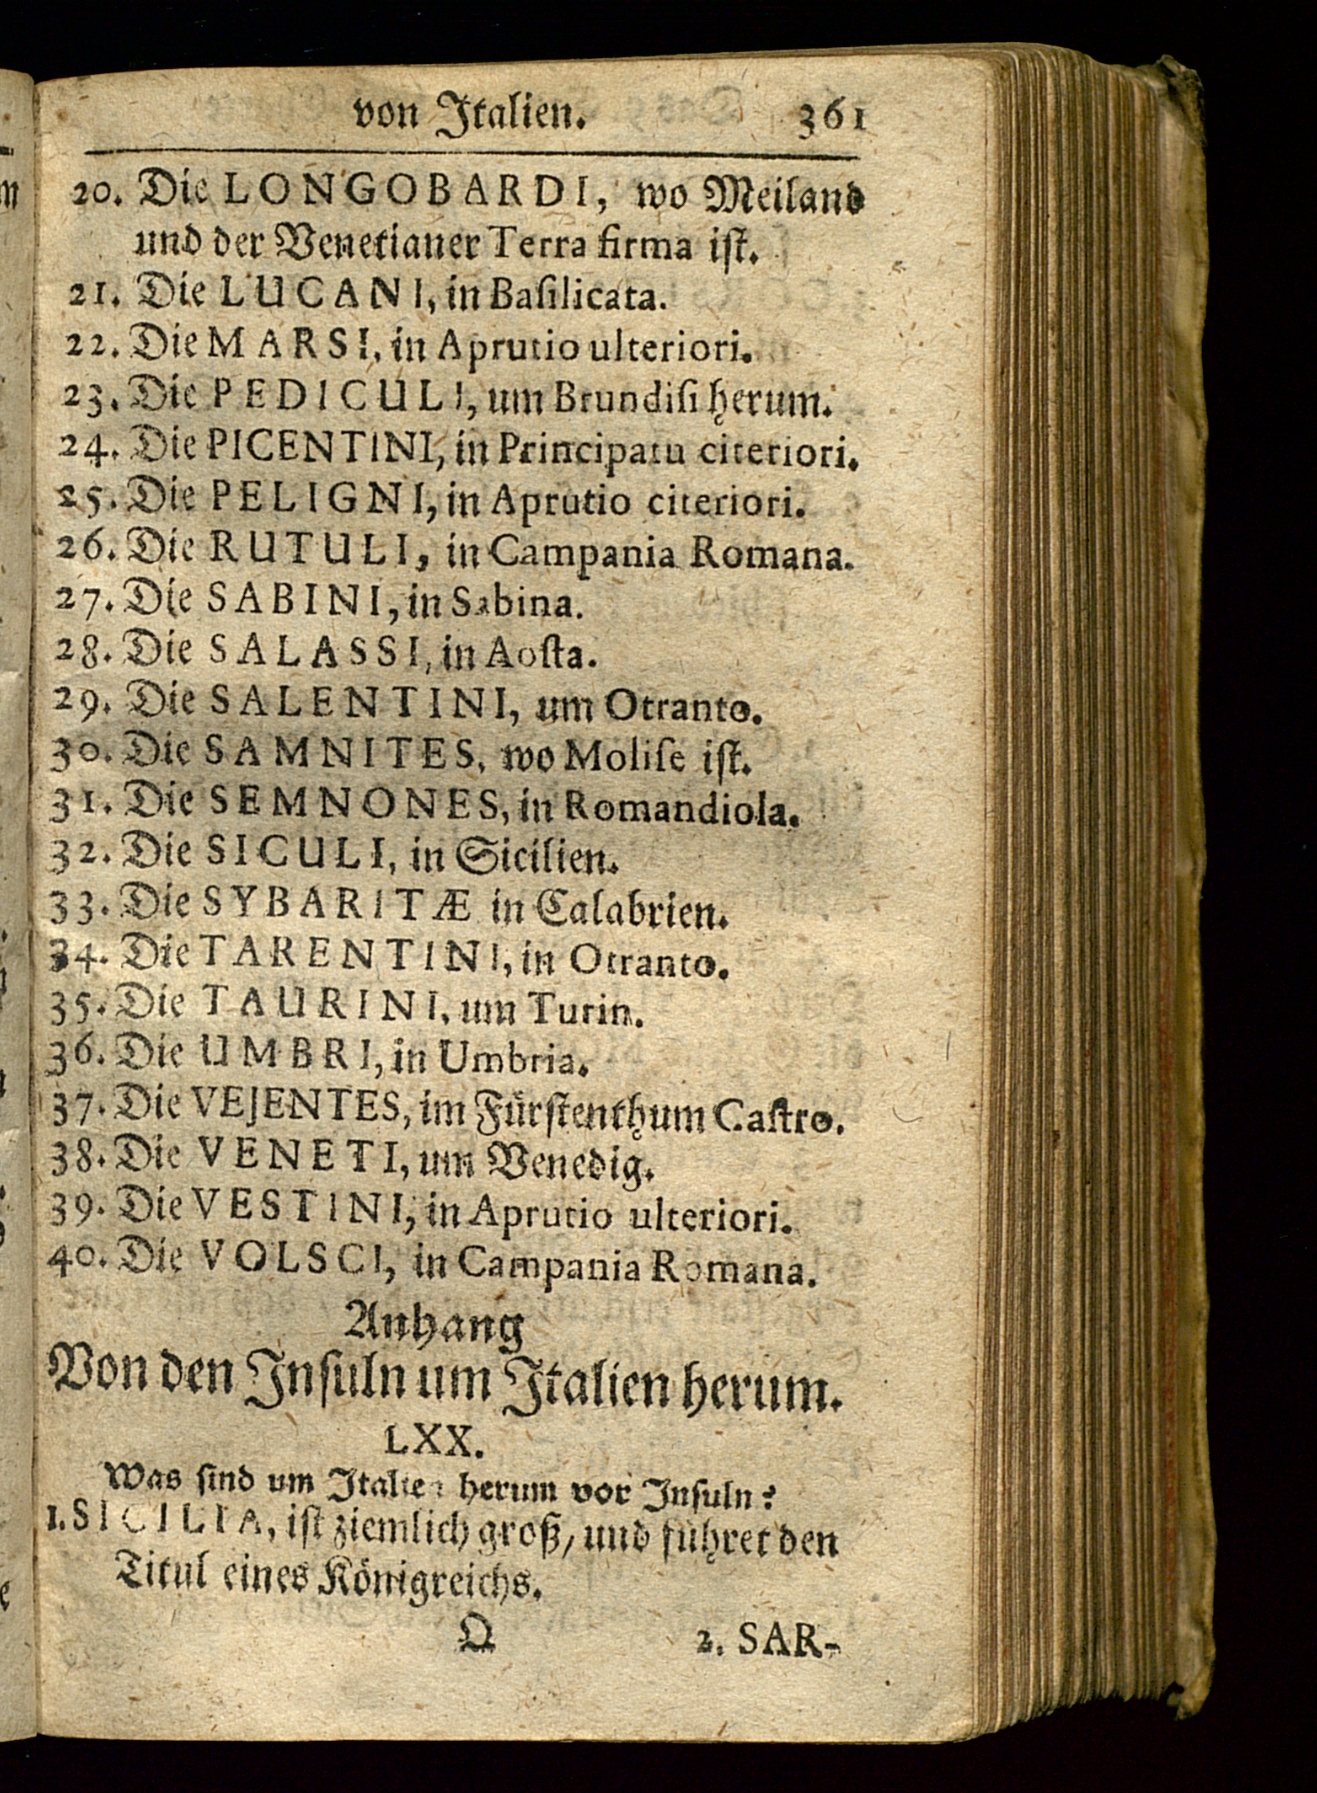 von Italien. 361
20. Die LONGOBARDI, wo Meiland
und der Venetianer Terra firma ist.
21. Die LUCANI, in Basilicata.
22. Die MARSI, in Aprutio ulteriori.
23. Die PEDICULI, um Brundisi herum.
24. Die PICENTINI, in Principatu citeriori.
25. Die PELIGNI, in Aprutio citeriori.
26. Die RUTULI, in Campania Romana.
27. Die SABINI, in Sabina.
28. Die SALASSI, in Aosta.
29. Die SALENTINI, um Otranto.
30. Die SAMNITES, wo Molise ist.
31. Die SEMNONES, in Romandiola.
32. Die SICULI, in Sicilien.
33. Die SYBARITÆ in Calabrien.
34. Die TARENTINI, in Otranto.
35. Die TAURINI, um Turin.
36. Die UMBRI, in Umbria.
37. Die VEJENTES, im Fürstenthum Castro.
38. Die VENETI, um Venedig.
39. Die VESTINI, in Aprutio ulteriori.
40. Die VOLSCI, in Campania Romana.
Anhang
Von den Insuln um Italien herum.
LXX.
Was sind um Italien herum vor Insuln?
1. SICILIA, ist ziemlich groß/ und führet den
Titul eines Königreichs.
Q 2. SAR-